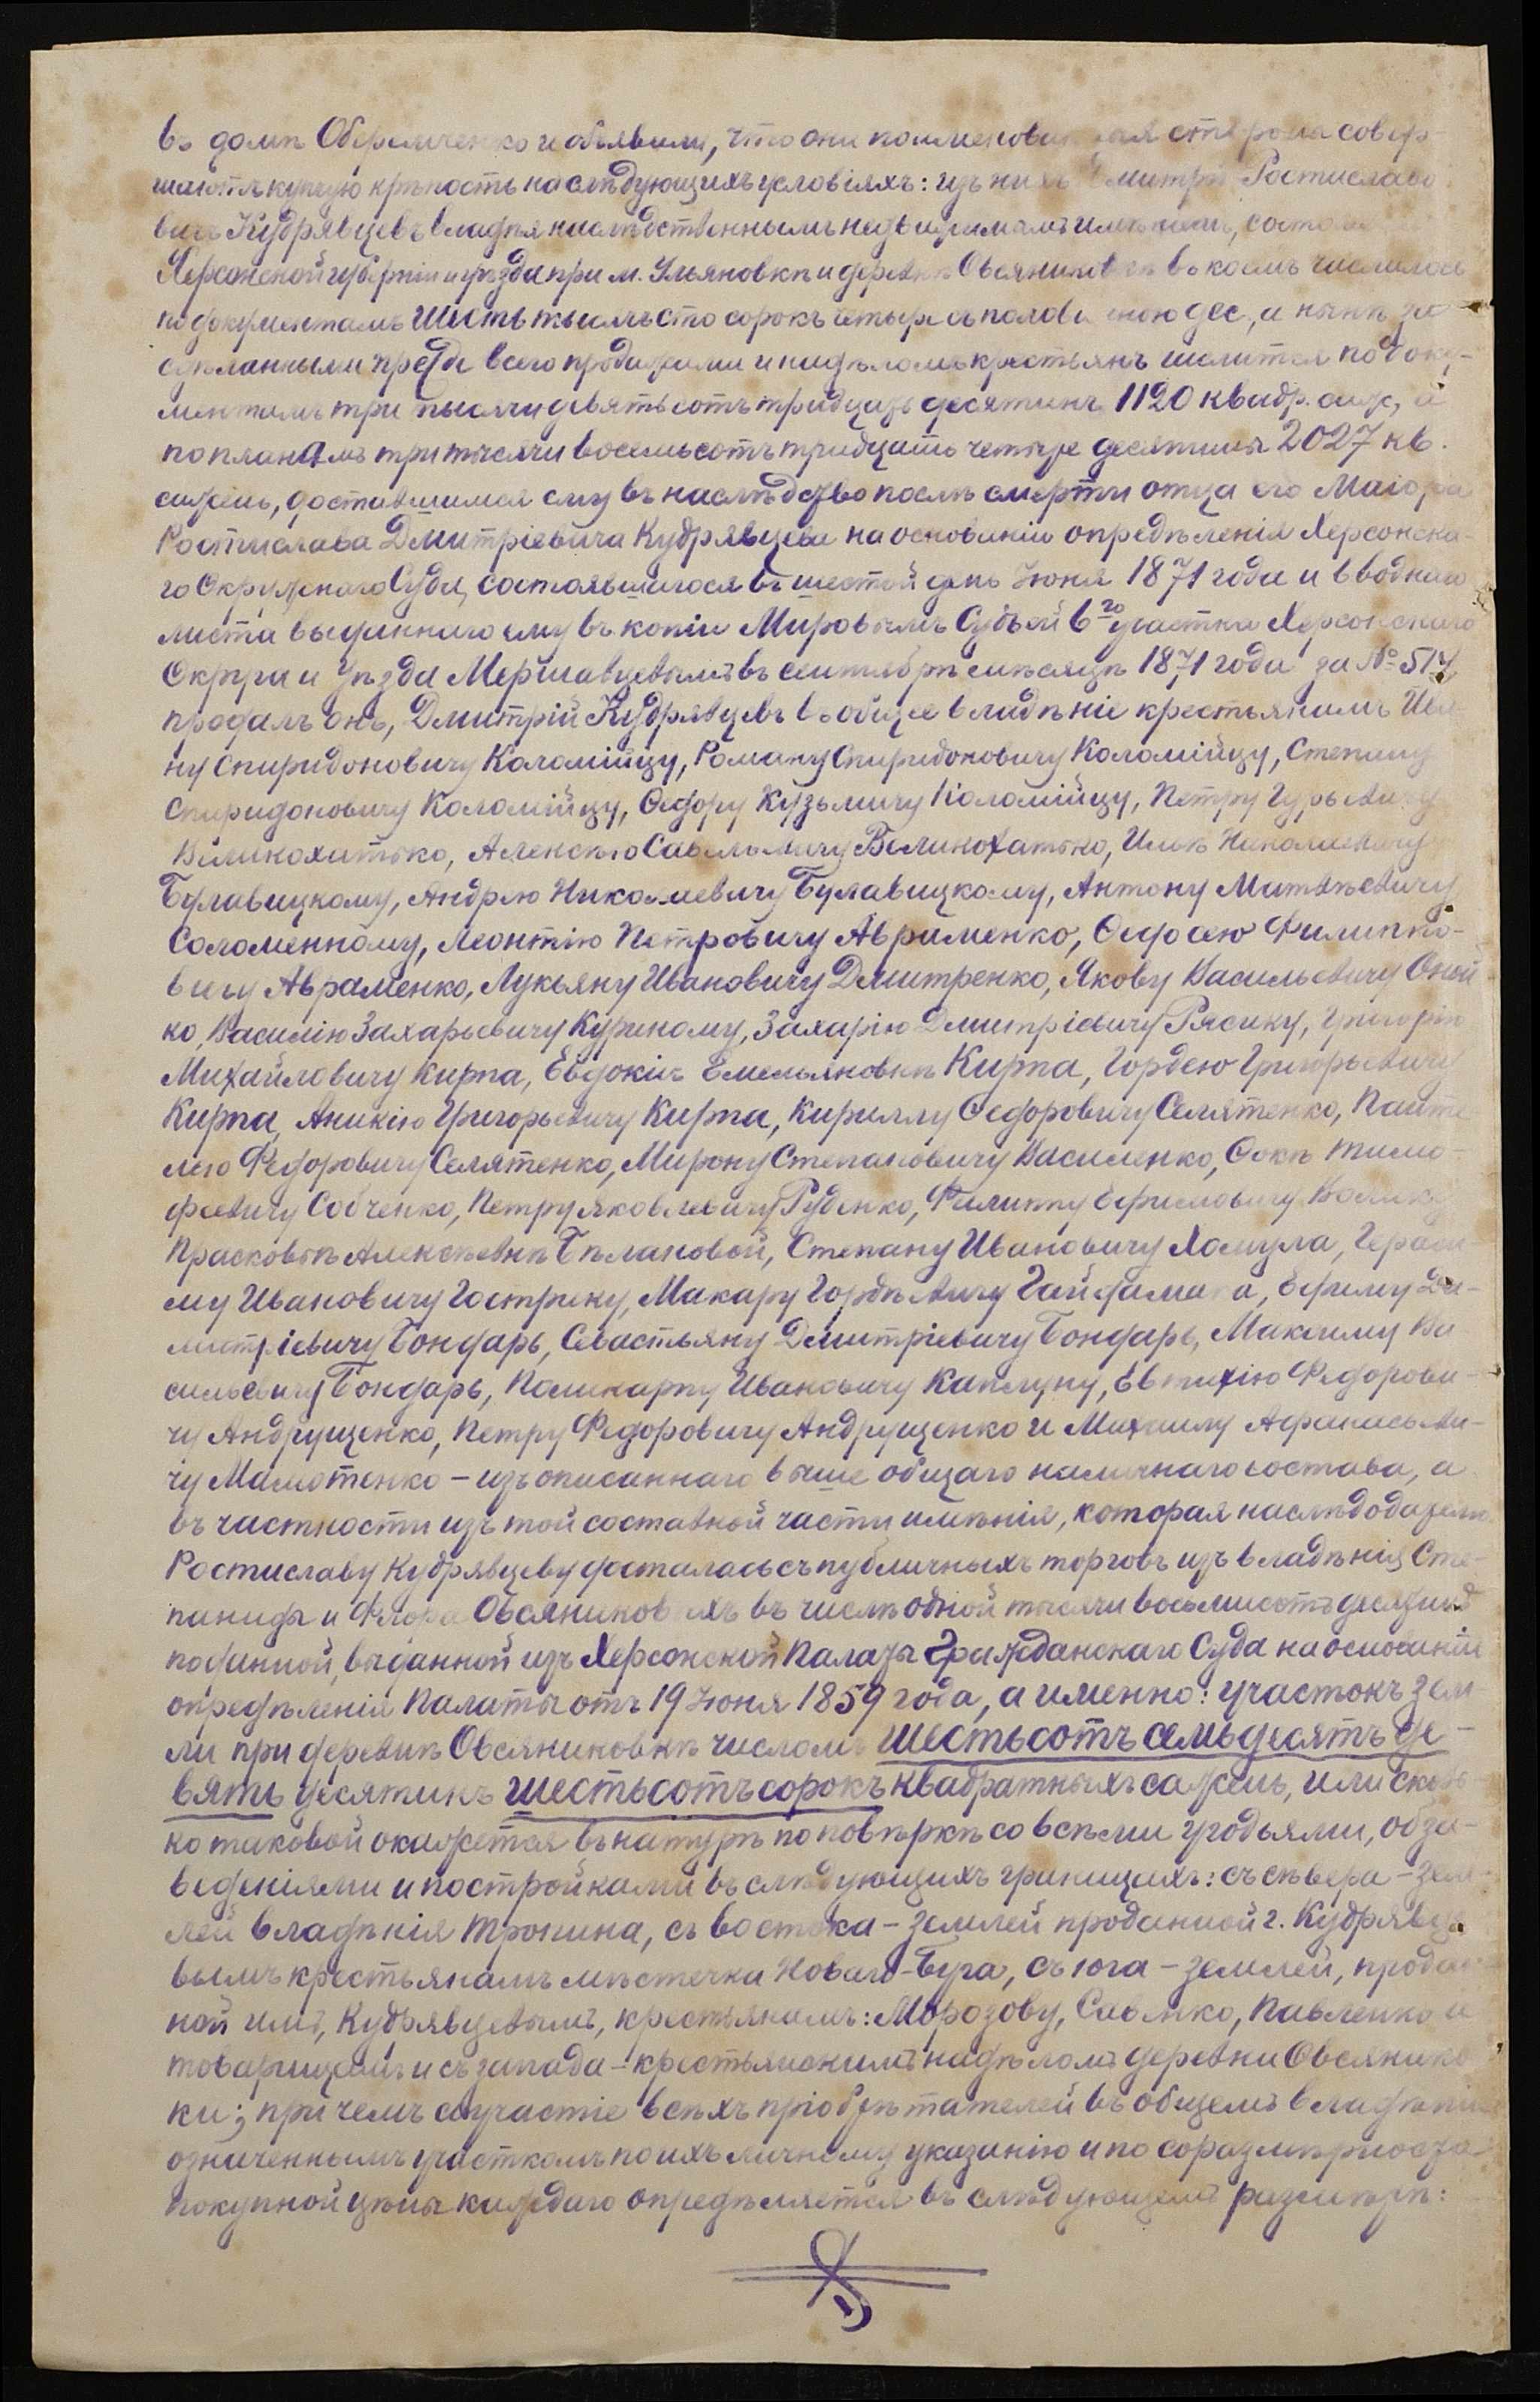 въ домѣ Оберемченко и объявили, что они поименован ыя стороны совер-
шаютъ купчую крѣпость на слѣдующихъ условіяхъ: изъ нихъ Дмитрій Ростиславо
вичъ Кудрявцевъ владѣя наслѣдственнымъ недвижимымъ имѣніемъ, состоя
Херсонской губерніи и уѣзда при м. Ульяновкѣ и деревнѣ Овсяниковкѣ въ коемъ числилось
по документамъ Шесть тысячъ сто сорокъ четыре съ полови ною дес, а нынѣ за
сдѣланными прежде всего продажами и надѣломъ крестьянъ числится по доку-
ментамъ три тысячи девятьсотъ тридцать десятинъ 1120 квадр. саж, а
по планамъ три тысячи восемьсотъ тридцать четыре десятины 2027 кв.
сажень, доставшимся ему въ наслѣдство послѣ смерти отца его Маіора
Ростислава Дмитріевича Кудрявцева на основаніи опредѣленія Херсонска-
го Окружнаго Суда, состоявшагося въ шестой день Іюня 1871 года и вводнаго
листа выданнаго ему въ копіи Мировымъ Судьей 6го участка Херсонскаго
Округа и Уѣзда Мершавцевымъ въ сентябрѣ мѣсяцѣ 1871 года за № 517
продалъ онъ, Дмитрій Кудрявцевъ въ общее владѣніе крестьянамъ Ива-
ну Спиридоновичу Коломійцу, Роману Спиридоновичу Коломійцу, Степану
Спиридоновичу Коломійцу, Ѳедору Кузьмичу Коломійцу, Петру Гурьевичу
Великохатько, Алексѣю Савельевичу Великохатько, Ильѣ Николаевичу
Булавицкому, Андрею Николаевичу Булавицкому, Антону Матвѣевичу
Соломенному, Леонтію Петровичу Авраменко, Ѳедосею Филиппо-
вичу Авраменко, Лукьяну Ивановичу Дмитренко, Якову Васильевичу Оной
ко, Василію Захарьевичу Куриному, Захарію Дмитріевичу Рясику, Григорію
Михайловичу Кирпа, Евдокіи Емельяновнѣ Кирпа, Гордею Григорьевичу
Кирпа, Аникію Григорьевичу Кирпа, Кириллу Ѳедоровичу Селятенко, Панте
лею Федоровичу Селятенко, Мирону Степановичу Василенко, Ѳокѣ Тимо-
феевичу Собченко, Петру Яковлевичу Руденко, Филиппу Ефимовичу
Прасковьѣ Алексѣевнѣ Бѣлановой, Степану Ивановичу Хомула, Гераси-
му Ивановичу Гострику, Макару Гордѣевичу Гайдама а, Ефиму Ди-
митріевичу Бондарь, Севастьяну Дмитріевичу Бондарь, Максиму Ва
сильевичу Бондарь, Поликарпу Ивановичу Каплуну, Евтихію Федорови-
чу Андрущенко, Петру Федоровичу Андрущенко и Михаилу Афанасьеви-
чу Мамотенко – изъ описаннаго выше общаго наличнаго состава, а
въ частности изъ той составной части имѣнія, которая наслѣдодателю
Ростиславу Кудрявцеву досталась съ публичныхъ торговъ изъ владѣнія Сте-
паниды и Флора Овсяников ыхъ въ числѣ одной тысячи восьмисотъ десятинъ
по данной, выданной изъ Херсонской Палаты Гражданскаго Суда на основаніи
опредѣленія Палаты отъ 19 Іюня 1859 года, а именно: участокъ зем-
ли при деревнѣ Овсяниковкѣ числомъ шестьсотъ семьдесятъ де-
вять десятинъ шестьсотъ сорокъ квадратныхъ сажень, или сколь-
ко таковой окажется въ натурѣ по повѣркѣ со всѣми угодьями, обза-
веденіями и постройками въ слѣдующихъ границахъ: съ сѣвера – зем-
лей владѣнія Тропина, съ востока – землей проданной г. Кудрявце
вымъ крестьянамъ мѣстечка Новаго-Буга, съ юга – землей, продан
ной имъ, Кудрявцевымъ, крестьянамъ: Морозову, Савенко, Павленко и
товарищамъ и съ запада – крестьянскимъ надѣломъ деревни Овсянико
ки; при чемъ соучастіе всѣхъ пріобрѣтателей въ общемъ владѣніи
означеннымъ участкомъ по ихъ личному указанію и по соразмѣрности
покупной цѣны каждаго опредѣляется въ слѣдующемъ размѣрѣ: